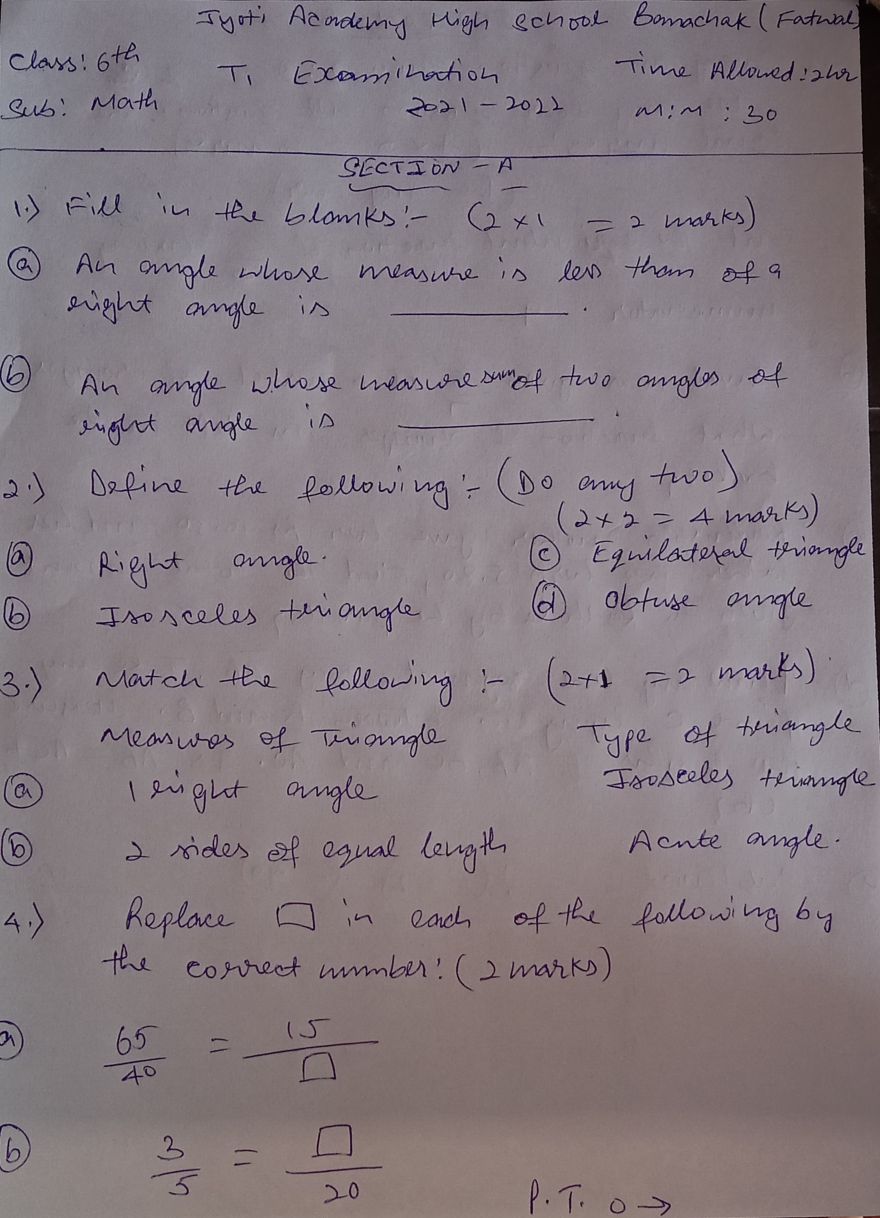 Jyoti Academy High School Bamachak (Fatwah)
Class: 6th T1 Examination Time Allowed: 2hr
Sub: Math 2021-2022 M:M : 30
SECTION - A
1.) Fill in the blanks:- (2 x 1 = 2 marks)
(a) An angle whose measure is less than of a
right angle is ________.
(b) An angle whose measure sum of two angles of
right angle is ________.
2.) Define the following:- (Do any two)
(2 x 2 = 4 marks)
(a) Right angle. (c) Equilateral triangle
(b) Isosceles triangle (d) Obtuse angle
3.) Match the following :- (2+1 = 2 marks)
Measures of Triangle Type of triangle
(a) 1 right angle Isosceles triangle
(b) 2 sides of equal length Acute angle.
4.) Replace □ in each of the following by
the correct number: (2 marks)
(a) 65/40 = 15/□
(b) 3/5 = □/20
P.T.O →